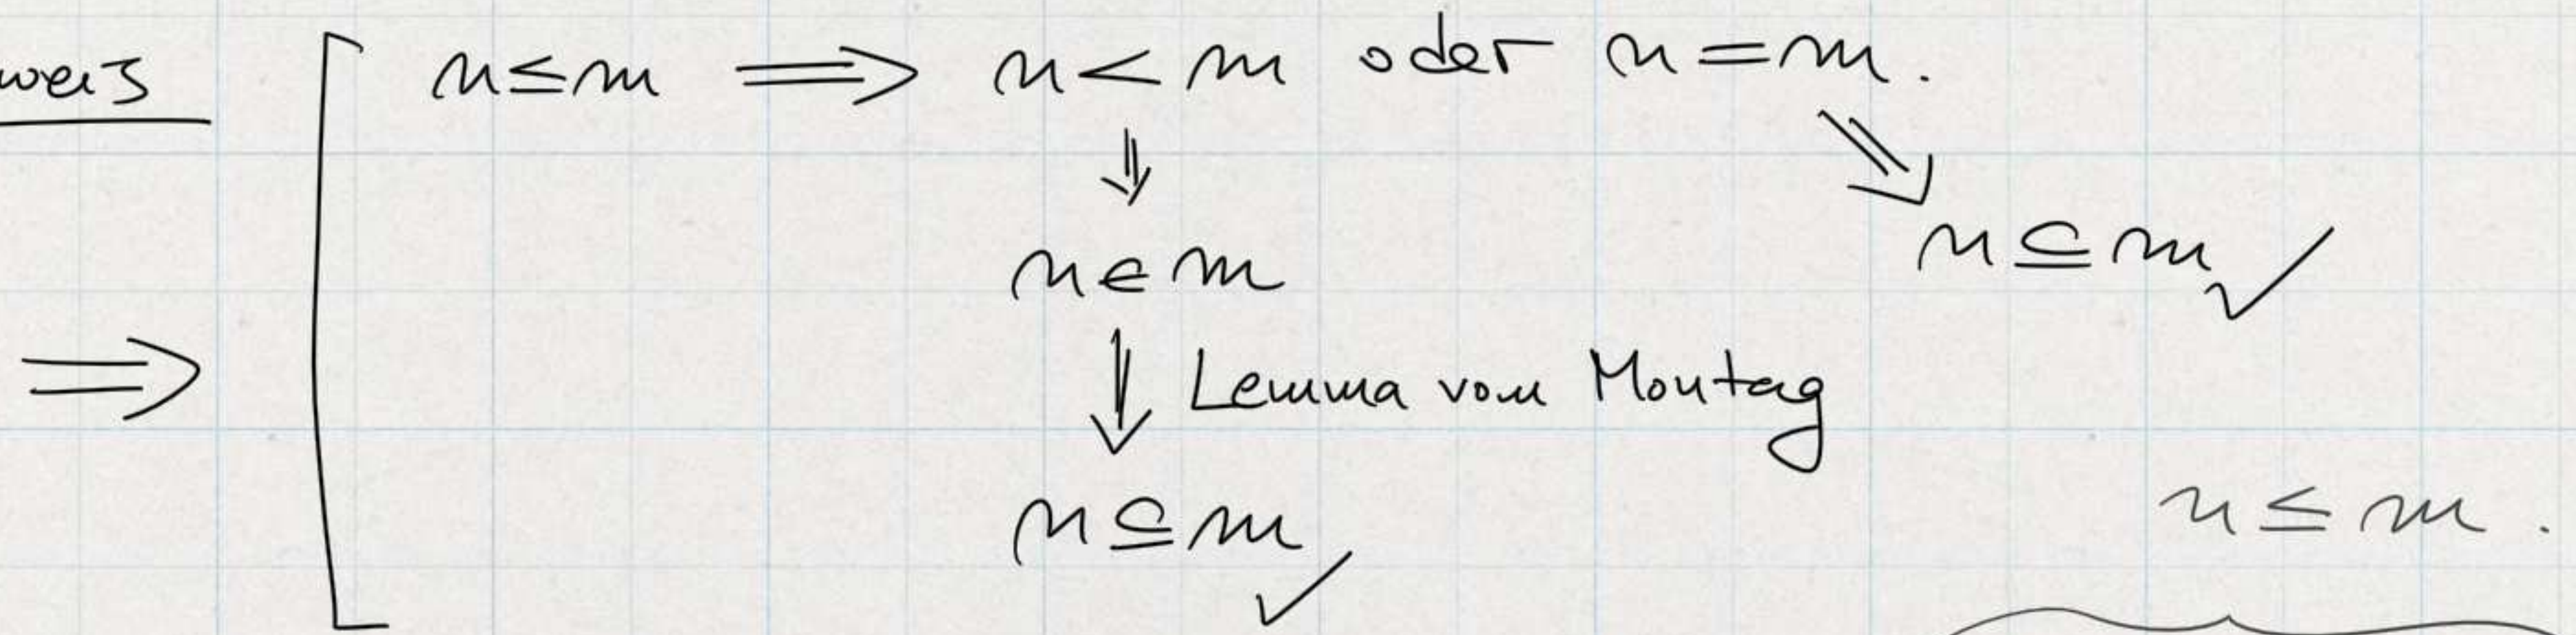 weis n ≤ m ⟹ n < m oder n = m.
⇓ ⇘
n ∈ m n ⊆ m ✓
⟹ ⇓ Lemma vom Montag
n ⊆ m ✓ n ≤ m.